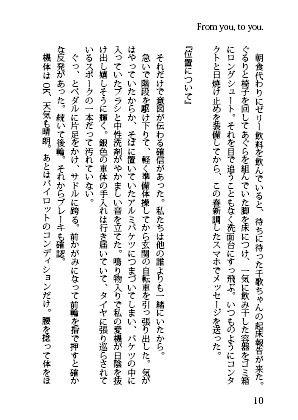 From you, to you.
朝食代わりにゼリー飲料を飲んでいると、待ちに待った千歌ちゃんの起床報告が来た。
ぐるりと椅子を回してあぐらを組んでいた脚を床につけ、一気に飲み干した容器をゴミ箱
にロングシュート。それを目で追うこともなく洗面台にすっ飛ぶ。いつものようにコンタ
クトと日焼け止めを装備してから、この春新調したスマホでメッセージを送った。
『位置について』
それだけで意図が伝わる確信があった。私たちは他の誰よりも一緒にいたから。
急いで階段を駆け下りて、軽く準備体操してから玄関の自転車を引っ張り出した。気が
はやっていたからか、そばに置いていたアルミバケツにつまづいてしまい、バケツの中に
入っていたブラシと中性洗剤がやかましい音を立てた。鳴り物入りで私の愛機が日陰を抜
け出し嬉しそうに輝く。銀色の車体の手入れは行き届いていて、タイヤに張り巡らされて
いるスポークの一本だって汚れていない。
ぐっ、とペダルに片足をかけ、サドルに跨る。前かがみになって前輪を指で押すと確か
な反発があった。続いて後輪。それからブレーキも確認。
機体はOK、天気も晴朗。あとはパイロットのコンディションだけ。腰を捻って体をほ
10